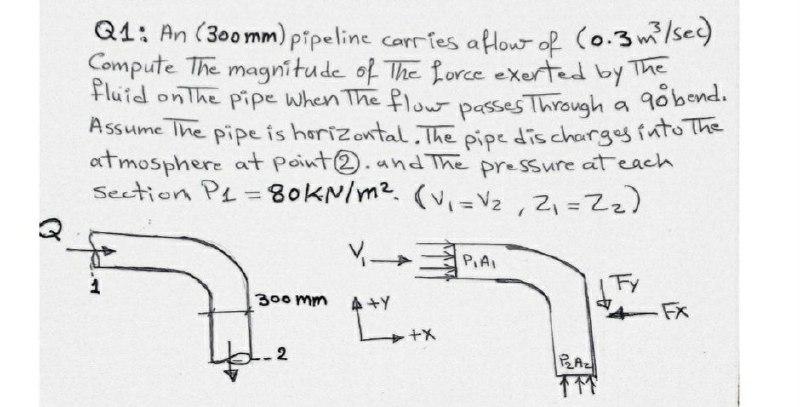 Q1: An (300mm) pipeline carries a flow of (0.3 m³/sec)
Compute The magnitude of The force exerted by The
fluid on The pipe when The flow passes Through a 90° bend.
Assume The pipe is horizontal. The pipe discharges into The
atmosphere at point ②. and The pressure at each
section P1 = 80KN/m². (V₁=V₂ , Z₁=Z₂)
Q
1
300 mm
2
V₁
P₁A₁
Fy
Fx
+Y
+X
P₂A₂